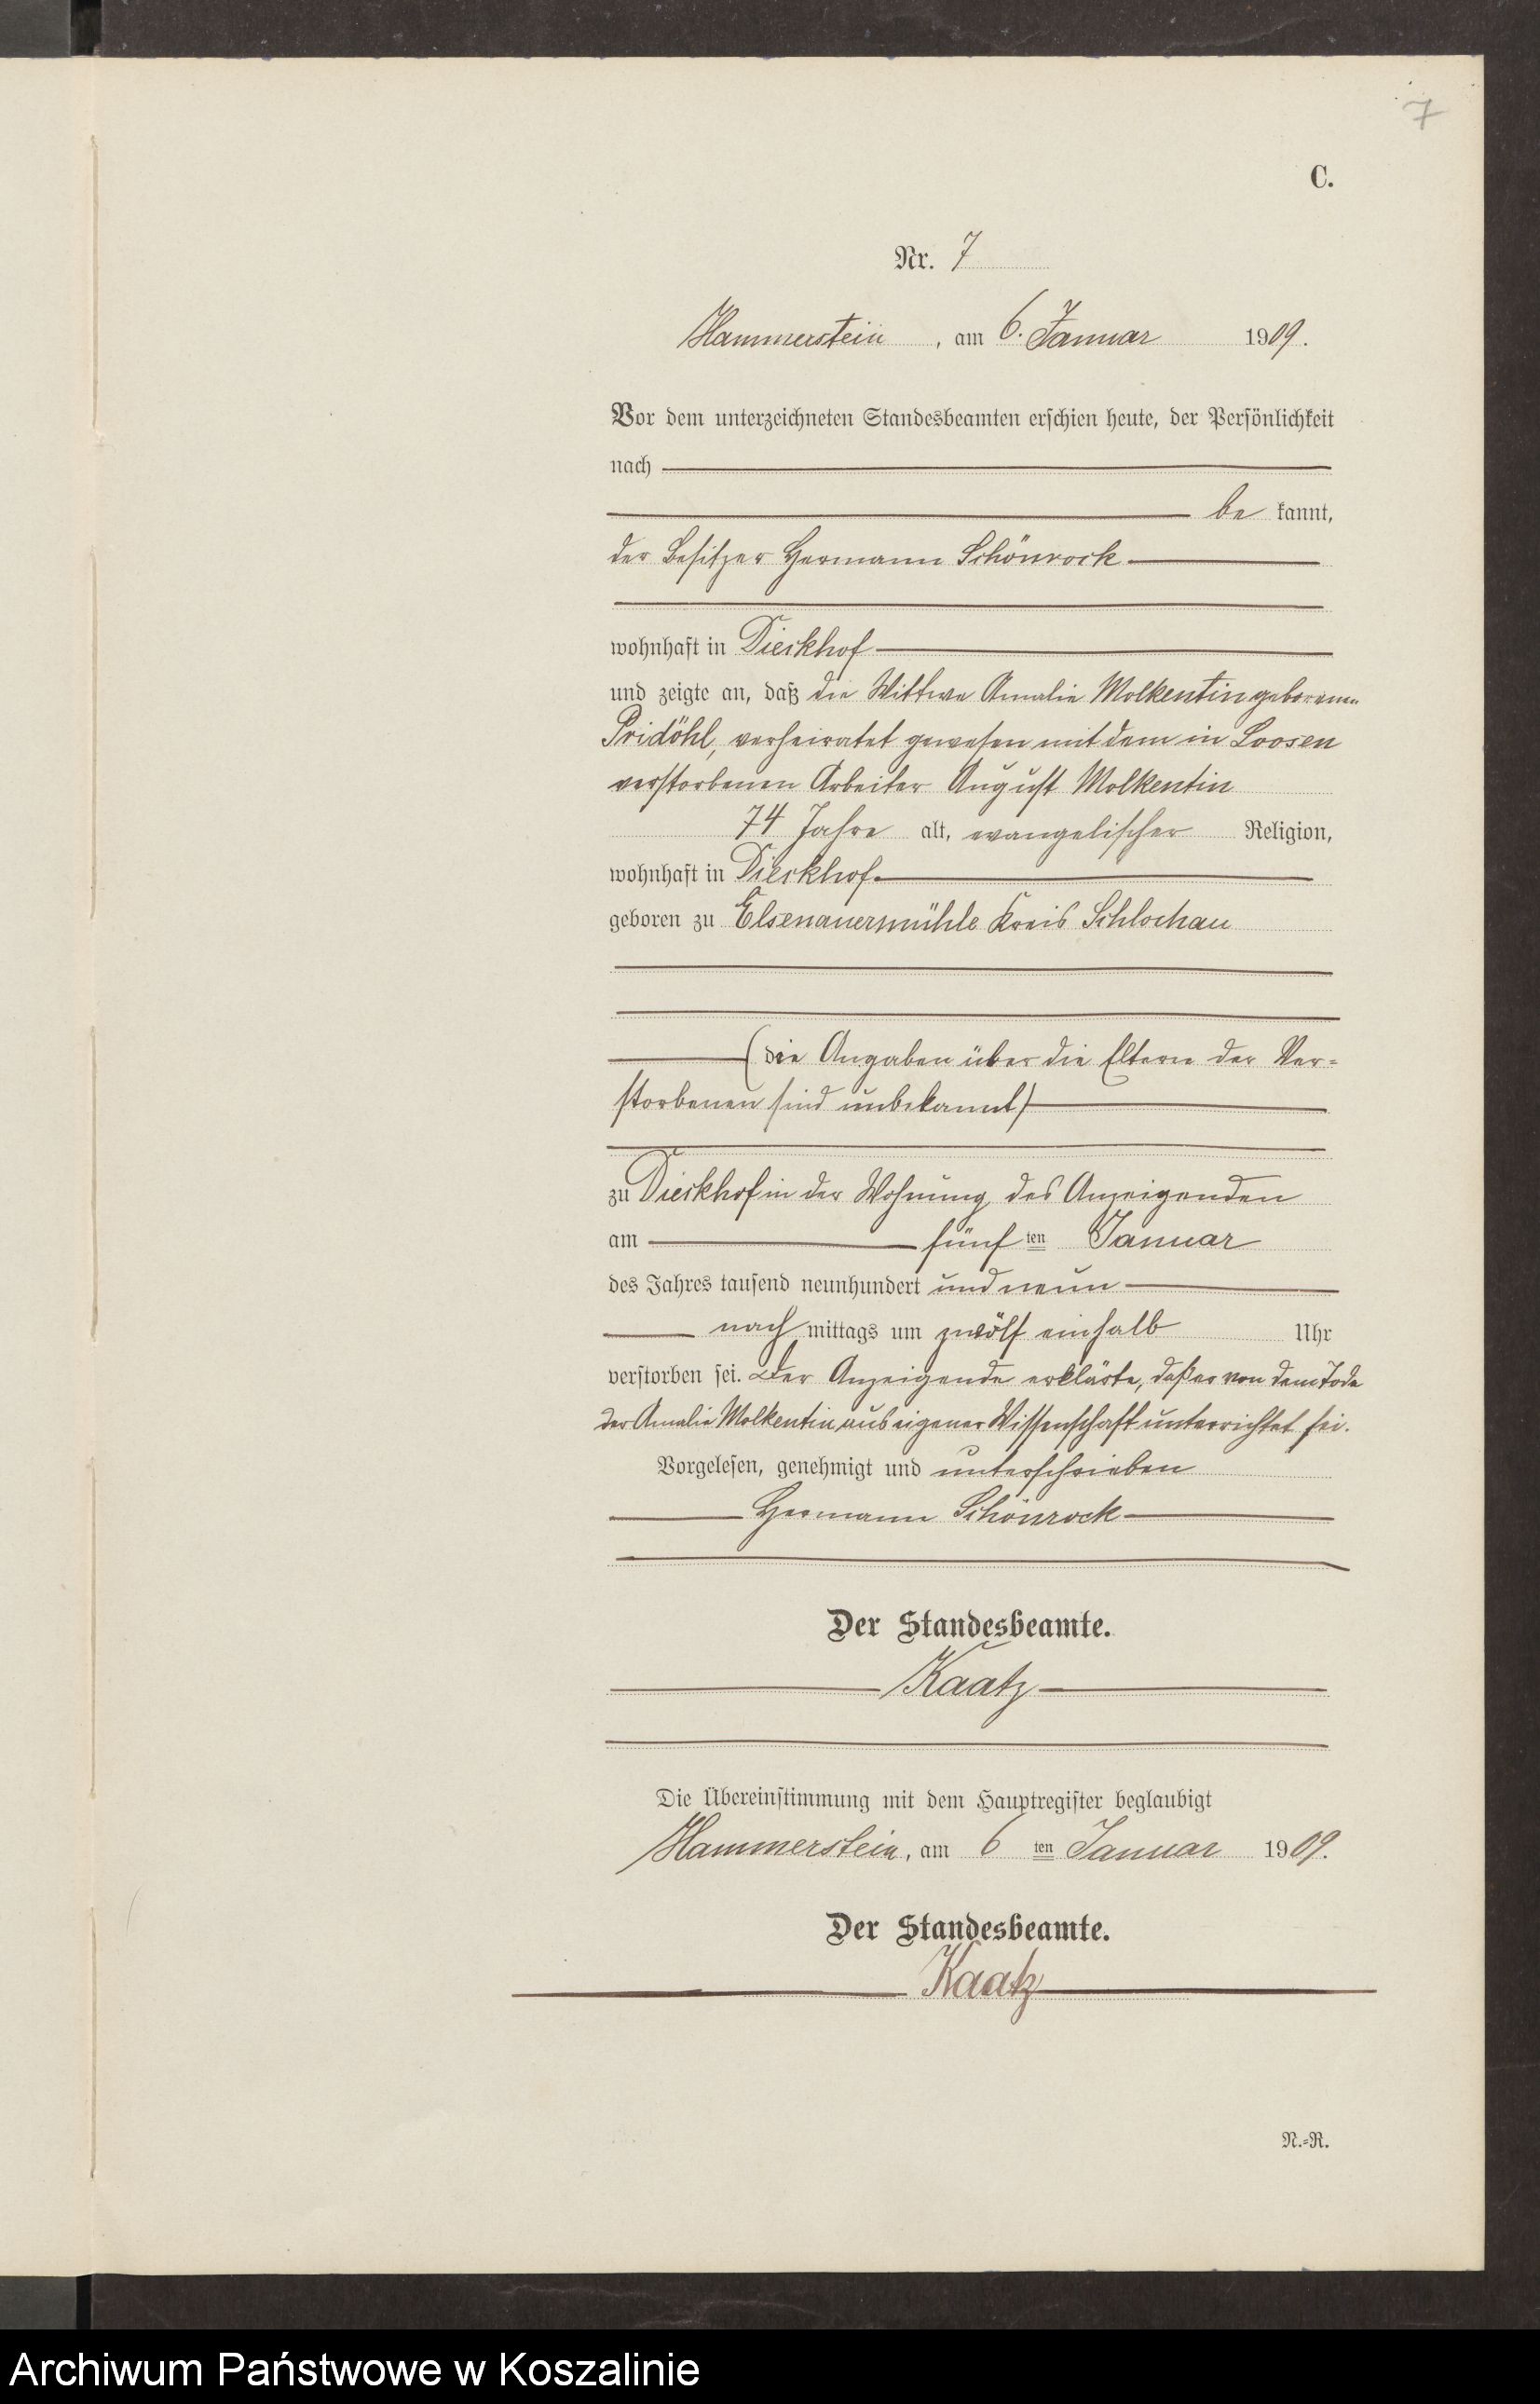 7
C.
Nr. 7
Hammerstein, am 6. Januar 1909.
Vor dem unterzeichneten Standesbeamten erschien heute, der Persönlichkeit
nach
be kannt,
der Besitzer Hermann Schönrock
wohnhaft in Dieckhof
und zeigte an, daß die Wittwe Amalie Molkentin geborene
Pridöhl, verheiratet gewesen mit dem in Loosen
verstorbenen Arbeiter August Molkentin
74 Jahre alt, evangelischer Religion,
wohnhaft in Dieckhof
geboren zu Elsenauermühle Kreis Schlochau
(die Angaben über die Eltern der Ver=
storbenen sind unbekannt)
zu Dieckhof in der Wohnung des Anzeigenden
am fünf ten Januar
des Jahres tausend neunhundert und neun
nach mittags um zwölf einhalb Uhr
verstorben sei. Der Anzeigende erklärte, daß er von dem Tode
der Amalie Molkentin aus eigener Wissenschaft unterrichtet sei.
Vorgelesen, genehmigt und unterschrieben
Hermann Schönrock
Der Standesbeamte.
Kaatz
Die Übereinstimmung mit dem Hauptregister beglaubigt
Hammerstein, am 6 ten Januar 1909.
Der Standesbeamte.
Kaatz
N.=R.
Archiwum Państwowe w Koszalinie